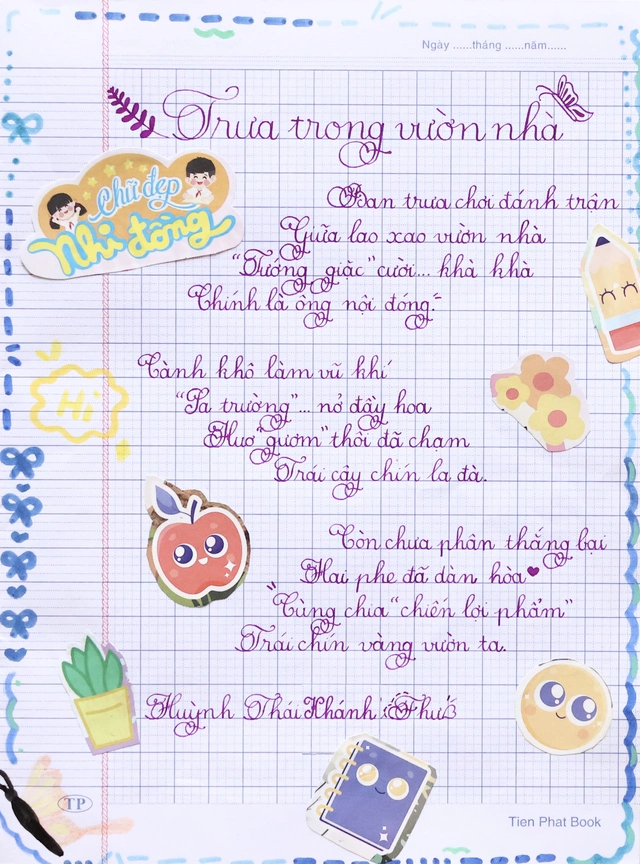 Ngày ......tháng ......năm......
Trưa trong vườn nhà
Chữ đẹp
Nhi đồng
Ban trưa chơi đánh trận
Giữa lao xao vườn nhà
"Tướng giặc" cười... khà khà
Chính là ông nội đóng.
Cành khô làm vũ khí
"Sa trường"... nở đầy hoa
Huơ "gươm" thôi đã chạm
Trái cây chín la đà.
Hi
Còn chưa phân thắng bại
Hai phe đã dàn hòa
Cùng chia "chiến lợi phẩm"
Trái chín vàng vườn ta.
Huỳnh Thái Khánh Thư
TP
Tien Phat Book